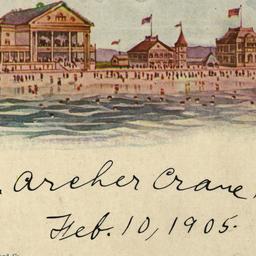 Archer Crane,
Feb. 10, 1905.